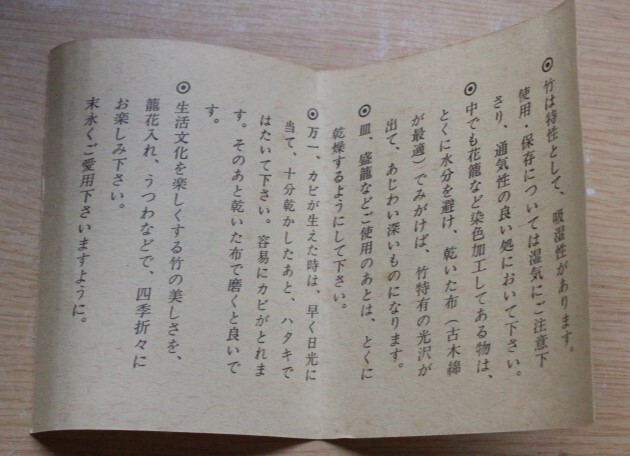 ◉竹は特性として、吸湿性があります。
使用・保存については湿気にご注意下
さり、通気性の良い処において下さい。
◉中でも花籠など染色加工してある物は、
とくに水分を避け、乾いた布（古木綿
が最適）でみがけば、竹特有の光沢が
出て、あじわい深いものになります。
◉皿、盛籠などご使用のあとは、とくに
乾燥するようにして下さい。
◉万一、カビが生えた時は、早く日光に
当て、十分乾かしたあと、ハタキで
はたいて下さい。容易にカビがとれま
す。そのあと乾いた布で磨くと良いで
す。
◉生活文化を楽しくする竹の美しさを、
籠花入れ、うつわなどで、四季折々に
お楽しみ下さい。
末永くご愛用下さいますように。